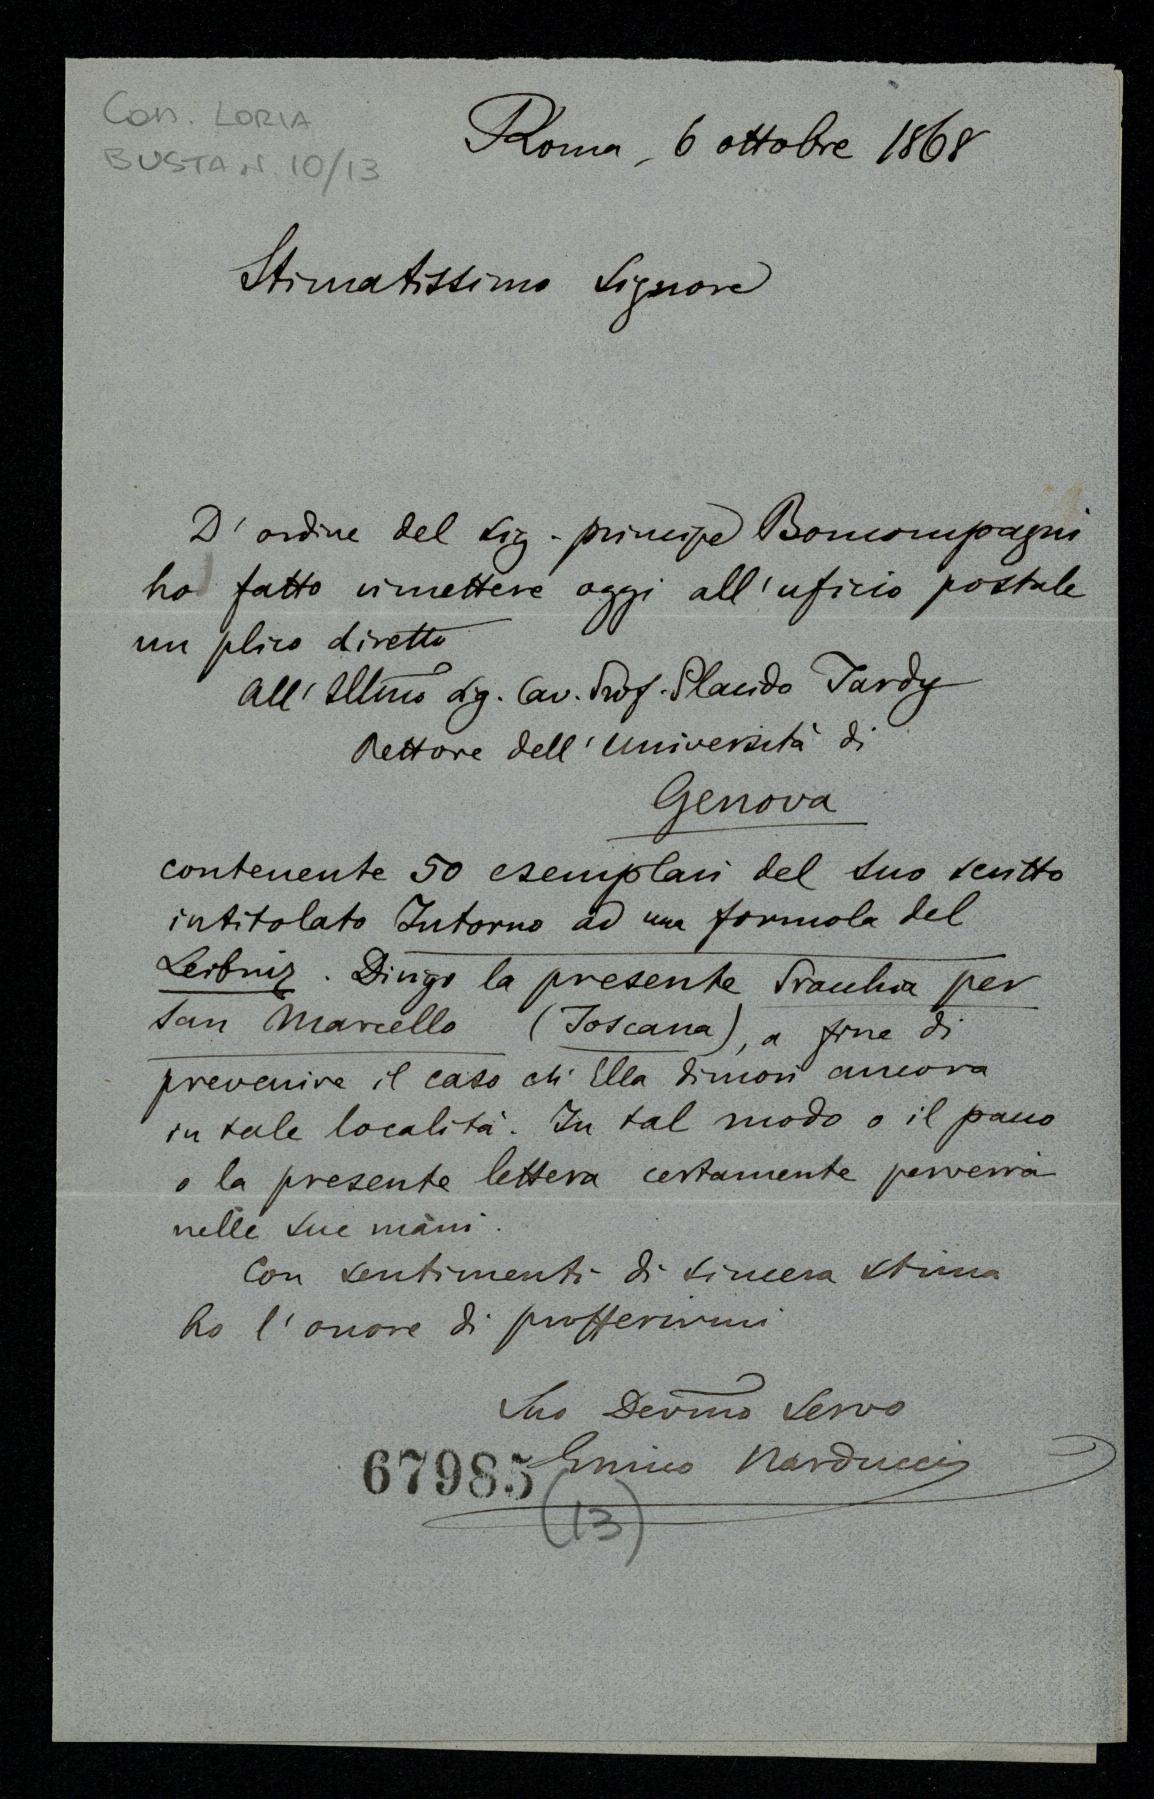 Con. LORIA
BUSTA N. 10/13
Roma, 6 ottobre 1868
Stimatissimo Signore
D'ordine del sig. principe Boncompagni
ho fatto rimettere oggi all'uficio postale
un plico diretto
All'Illmo Sig. Cav. Prof. Placido Tardy
Rettore dell'Università di
Genova
contenente 50 esemplari del suo scritto
intitolato Intorno ad una formola del
Leibniz. Dirigo la presente Pracchia per
San Marcello (Toscana), a fine di
prevenire il caso ch'Ella dimori ancora
in tale località. In tal modo o il pacco
o la presente lettera certamente perverrà
nelle sue mani.
Con sentimenti di sincera stima
ho l'onore di profferirmi
Suo Devmo Servo
Enrico Narducci
67985
(13)